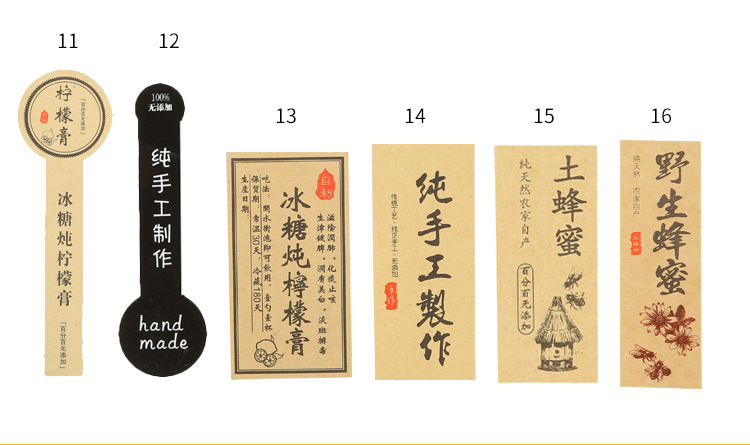 11
12
13
14
15
16
柠檬膏
「百分百无添加」
冰糖炖柠檬膏
「百分百无添加」
100%
无添加
纯手工制作
hand
made
自制
滋陰潤肺，化痰止咳
生津健脾，潤膏美白，淡斑排毒
冰糖炖檸檬膏
吃法：開水衝泡即可飲用，壹勺壹杯
保質期：常溫30天，冷藏180天
生産日期：
纯手工製作
传统工艺·纯正手工·无添加
手作
土蜂蜜
纯天然农家自产
百分百无添加
野生蜂蜜
纯天然 农家自产